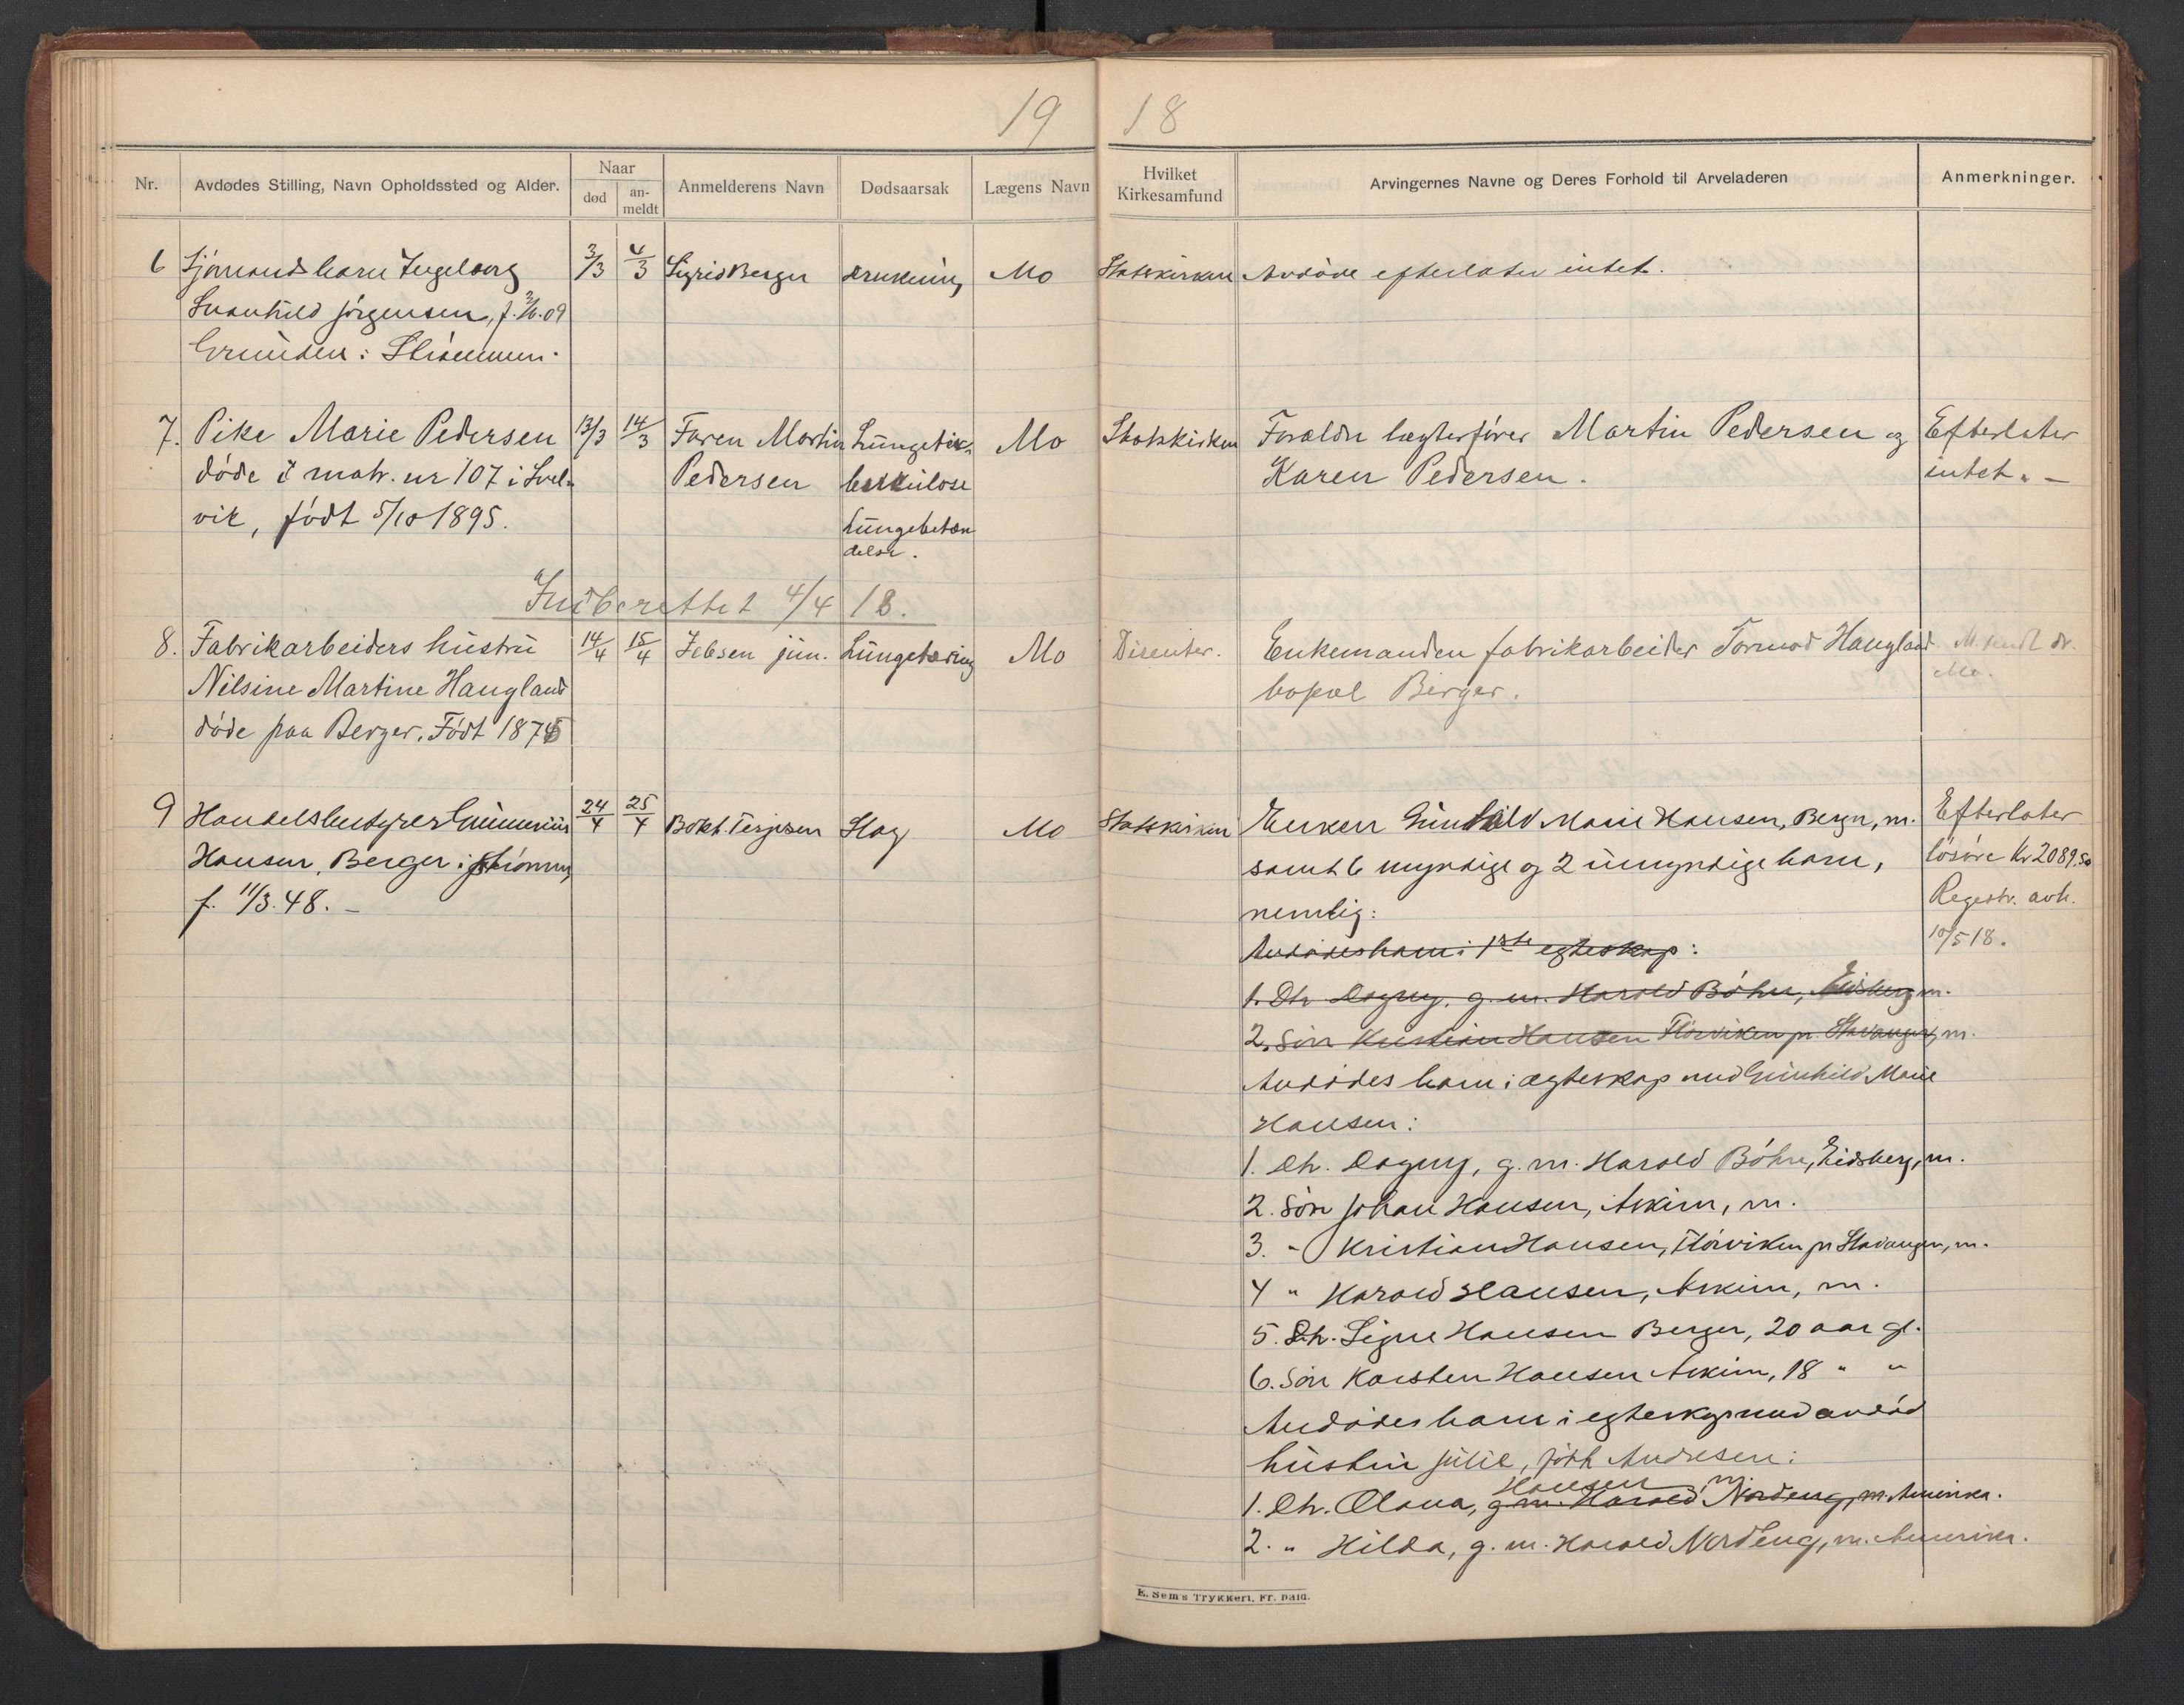 19 18
Nr. Avdødes Stilling, Navn Opholdssted og Alder. Naar død an-meldt Anmelderens Navn Dødsaarsak Lægens Navn Hvilket Kirkesamfund Arvingernes Navne og Deres Forhold til Arveladeren Anmerkninger.
6 Sjømandsbarn Ingeborg 3/3 4/3 Sigrid Berger drukning Mo Statskirken Avdøde efterlater intet.
Svanhild Jörgensen, f. 09
Grunden: Strömmen.
7. Pike Marie Pedersen 13/3 14/3 Faren Martin Lungetu- Mo Statskirken Forældre lægterfører Martin Pedersen og Efterlater
döde i matr. nr 107 i Svel- Pedersen berkulose Karen Pedersen. intet. —
vik, födt 5/10 1895. Lungebetæn
delse.
Indberettet 4/4 18.
8. Fabrikarbeiders hustru 14/4 15/4 Jebsen jun. Lungetæring Mo Disenter. Enkemanden fabrikarbeider Tormod Haugland M. sendt dr.
Nilsine Martine Haugland bopæl Berger. Mo.
döde paa Berger. Födt 1875
9 Handelsbestyrer Gunnerius 24/4 25/4 Bokh. Terjesen Slag Mo Statskirken Enken Gunhild Marie Hansen, Berger, m. Efterlater
Hansen, Berger i Strömm, samt 6 myndige og 2 umyndige barn, lösöre Kr 2089.50
f. 11/3.48. — nemlig: Registr. avh.
Avdödes barn i 1ste egteskap: 10/5 18.
1. Dtr Dagny, g. m. Harold Böhn, Eidsberg m.
2. Sön Kristian Hansen Flörviken pr. Stavanger, m.
Avdödes barn i ægteskap med Gunhild Marie
Hansen:
1. Dtr. Dagny, g. m. Harold Böhn, Eidsberg, m.
2. Sön Johan Hansen, Askim, m.
3. - Kristian Hansen, Flörviken pr Stavanger, m.
4 " Harald Hansen, Askim, m.
5. Dtr. Signe Hansen Berger, 20 aar gl.
6. Sön Karsten Hansen Askim, 18 " "
Avdödes barn i egteskap med avdöd
hustru Julie, född Andresen:
Hansen
1. Dtr. Olava, g. m. Harald Nordeng, m. Amerika.
2. " Hilda, g. m. Harald Nordeng, m. Amerika.
E. Sem's Trykkeri, Fr. hald.